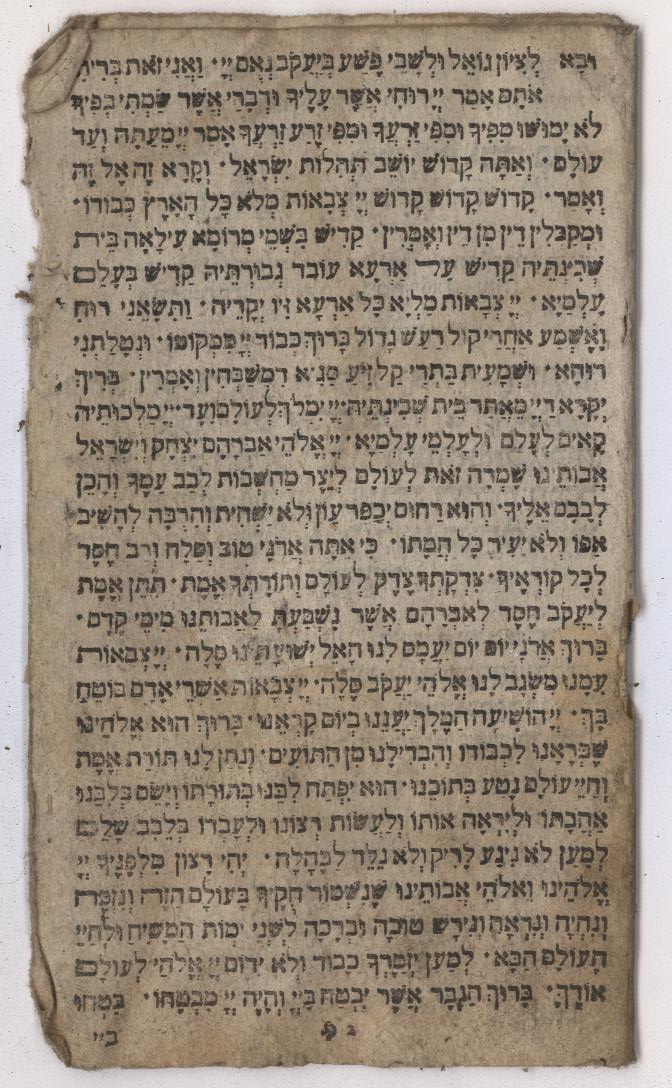 וּבָא לְצִיּוֹן גּוֹאֵל וּלְשָׁבֵי פֶשַׁע בְּיַעֲקֹב נְאֻם יְיָ׃ וַאֲנִי זֹאת בְּרִיתִי
אֹתָם אָמַר יְיָ רוּחִי אֲשֶׁר עָלֶיךָ וּדְבָרַי אֲשֶׁר שַׂמְתִּי בְּפִיךָ
לֹא יָמוּשׁוּ מִפִּיךָ וּמִפִּי זַרְעֲךָ וּמִפִּי זֶרַע זַרְעֲךָ אָמַר יְיָ מֵעַתָּה וְעַד
עוֹלָם׃ וְאַתָּה קָדוֹשׁ יוֹשֵׁב תְּהִלּוֹת יִשְׂרָאֵל׃ וְקָרָא זֶה אֶל זֶה
וְאָמַר׃ קָדוֹשׁ קָדוֹשׁ קָדוֹשׁ יְיָ צְבָאוֹת מְלֹא כָל הָאָרֶץ כְּבוֹדוֹ׃
וּמְקַבְּלִין דֵּין מִן דֵּין וְאָמְרִין׃ קַדִּישׁ בִּשְׁמֵי מְרוֹמָא עִילָּאָה בֵּית
שְׁכִינְתֵּיהּ קַדִּישׁ עַל אַרְעָא עוֹבַד גְּבוּרְתֵּיהּ קַדִּישׁ בְּעָלַם
עָלְמַיָּא׃ יְיָ צְבָאוֹת מַלְיָא כָל אַרְעָא זִיו יְקָרֵיהּ׃ וַתִּשָּׂאֵנִי רוּחַ
וָאֶשְׁמַע אַחֲרַי קוֹל רַעַשׁ גָּדוֹל בָּרוּךְ כְּבוֹד יְיָ מִמְּקוֹמוֹ׃ וּנְטָלַתְנִי
רוּחָא׃ וּשְׁמָעִית בַּתְרַי קָל זִיעַ סַגִּיא דִּמְשַׁבְּחִין וְאָמְרִין׃ בְּרִיךְ
יְקָרָא דַיְיָ מֵאֲתַר בֵּית שְׁכִינְתֵּיהּ׃ יְיָ יִמְלֹךְ לְעוֹלָם וָעֶד׃ יְיָ מַלְכוּתֵיהּ
קָאִים לְעָלַם וּלְעָלְמֵי עָלְמַיָּא׃ יְיָ אֱלֹהֵי אַבְרָהָם יִצְחָק וְיִשְׂרָאֵל
אֲבוֹתֵינוּ שָׁמְרָה זֹאת לְעוֹלָם לְיֵצֶר מַחְשְׁבוֹת לְבַב עַמֶּךָ וְהָכֵן
לְבָבָם אֵלֶיךָ׃ וְהוּא רַחוּם יְכַפֵּר עָוֹן וְלֹא יַשְׁחִית וְהִרְבָּה לְהָשִׁיב
אַפּוֹ וְלֹא יָעִיר כָּל חֲמָתוֹ׃ כִּי אַתָּה אֲדֹנָי טוֹב וְסַלָּח וְרַב חֶסֶד
לְכָל קוֹרְאֶיךָ׃ צִדְקָתְךָ צֶדֶק לְעוֹלָם וְתוֹרָתְךָ אֱמֶת׃ תִּתֵּן אֱמֶת
לְיַעֲקֹב חֶסֶד לְאַבְרָהָם אֲשֶׁר נִשְׁבַּעְתָּ לַאֲבוֹתֵנוּ מִימֵי קֶדֶם׃
בָּרוּךְ אֲדֹנָי יוֹם יוֹם יַעֲמָס לָנוּ הָאֵל יְשׁוּעָתֵינוּ סֶלָה׃ יְיָ צְבָאוֹת
עִמָּנוּ מִשְׂגָּב לָנוּ אֱלֹהֵי יַעֲקֹב סֶלָה׃ יְיָ צְבָאוֹת אַשְׁרֵי אָדָם בּוֹטֵחַ
בָּךְ׃ יְיָ הוֹשִׁיעָה הַמֶּלֶךְ יַעֲנֵנוּ בְיוֹם קָרְאֵנוּ׃ בָּרוּךְ הוּא אֱלֹהֵינוּ
שֶׁבְּרָאָנוּ לִכְבוֹדוֹ וְהִבְדִּילָנוּ מִן הַתּוֹעִים׃ וְנָתַן לָנוּ תּוֹרַת אֱמֶת
וְחַיֵּי עוֹלָם נָטַע בְּתוֹכֵנוּ׃ הוּא יִפְתַּח לִבֵּנוּ בְּתוֹרָתוֹ וְיָשֵׂם בְּלִבֵּנוּ
אַהֲבָתוֹ וּלְיִרְאָה אוֹתוֹ וְלַעֲשׂוֹת רְצוֹנוֹ וּלְעָבְדוֹ בְּלֵבָב שָׁלֵם
לְמַעַן לֹא נִיגַע לָרִיק וְלֹא נֵלֵד לַבֶּהָלָה׃ יְהִי רָצוֹן מִלְּפָנֶיךָ יְיָ
אֱלֹהֵינוּ וֵאלֹהֵי אֲבוֹתֵינוּ שֶׁנִּשְׁמוֹר חֻקֶּיךָ בָּעוֹלָם הַזֶּה וְנִזְכֶּה
וְנִחְיֶה וְנִרְאֶה וְנִירַשׁ טוֹבָה וּבְרָכָה לִשְׁנֵי יְמוֹת הַמָּשִׁיחַ וּלְחַיֵּי
הָעוֹלָם הַבָּא׃ לְמַעַן יְזַמֶּרְךָ כָבוֹד וְלֹא יִדּוֹם יְיָ אֱלֹהַי לְעוֹלָם
אוֹדֶךָּ׃ בָּרוּךְ הַגֶּבֶר אֲשֶׁר יִבְטַח בַּיְיָ וְהָיָה יְיָ מִבְטַחוֹ׃ בִּטְחוּ
ב׳׳